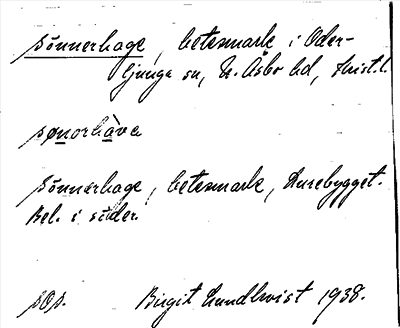 Sönnerhage, betesmark i Oder-
ljunga sn, N. Åsbo hd, Krist. l.
sønorhàva
Sönnerhage, betesmark, Lurebygget.
Bel. i söder.
sOp. Birgit Lundkvist 1938.